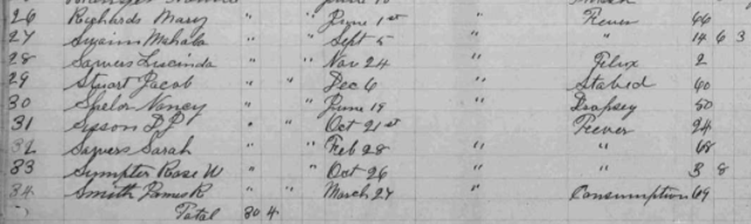 26 Richards Mary " " June 1st " Fever 66
27 Swaim Mahala " " Sept 5 " " 14 6 3
28 Sowers Liscinda " " Nov 24 " Flux 2
29 Stuart Jacob " " Dec 6 " Stabed 60
30 Nancy " " June 19 " Dropsey 50
31 Sisson D P " " Oct 21st " Fever 24
32 Sowers Sarah " " Feb 28 " " 68
33 Sympter Rose W " " Oct 26 " " 3 8
34 Smith James R " " March 27 " Consumption 69
Total 30 4